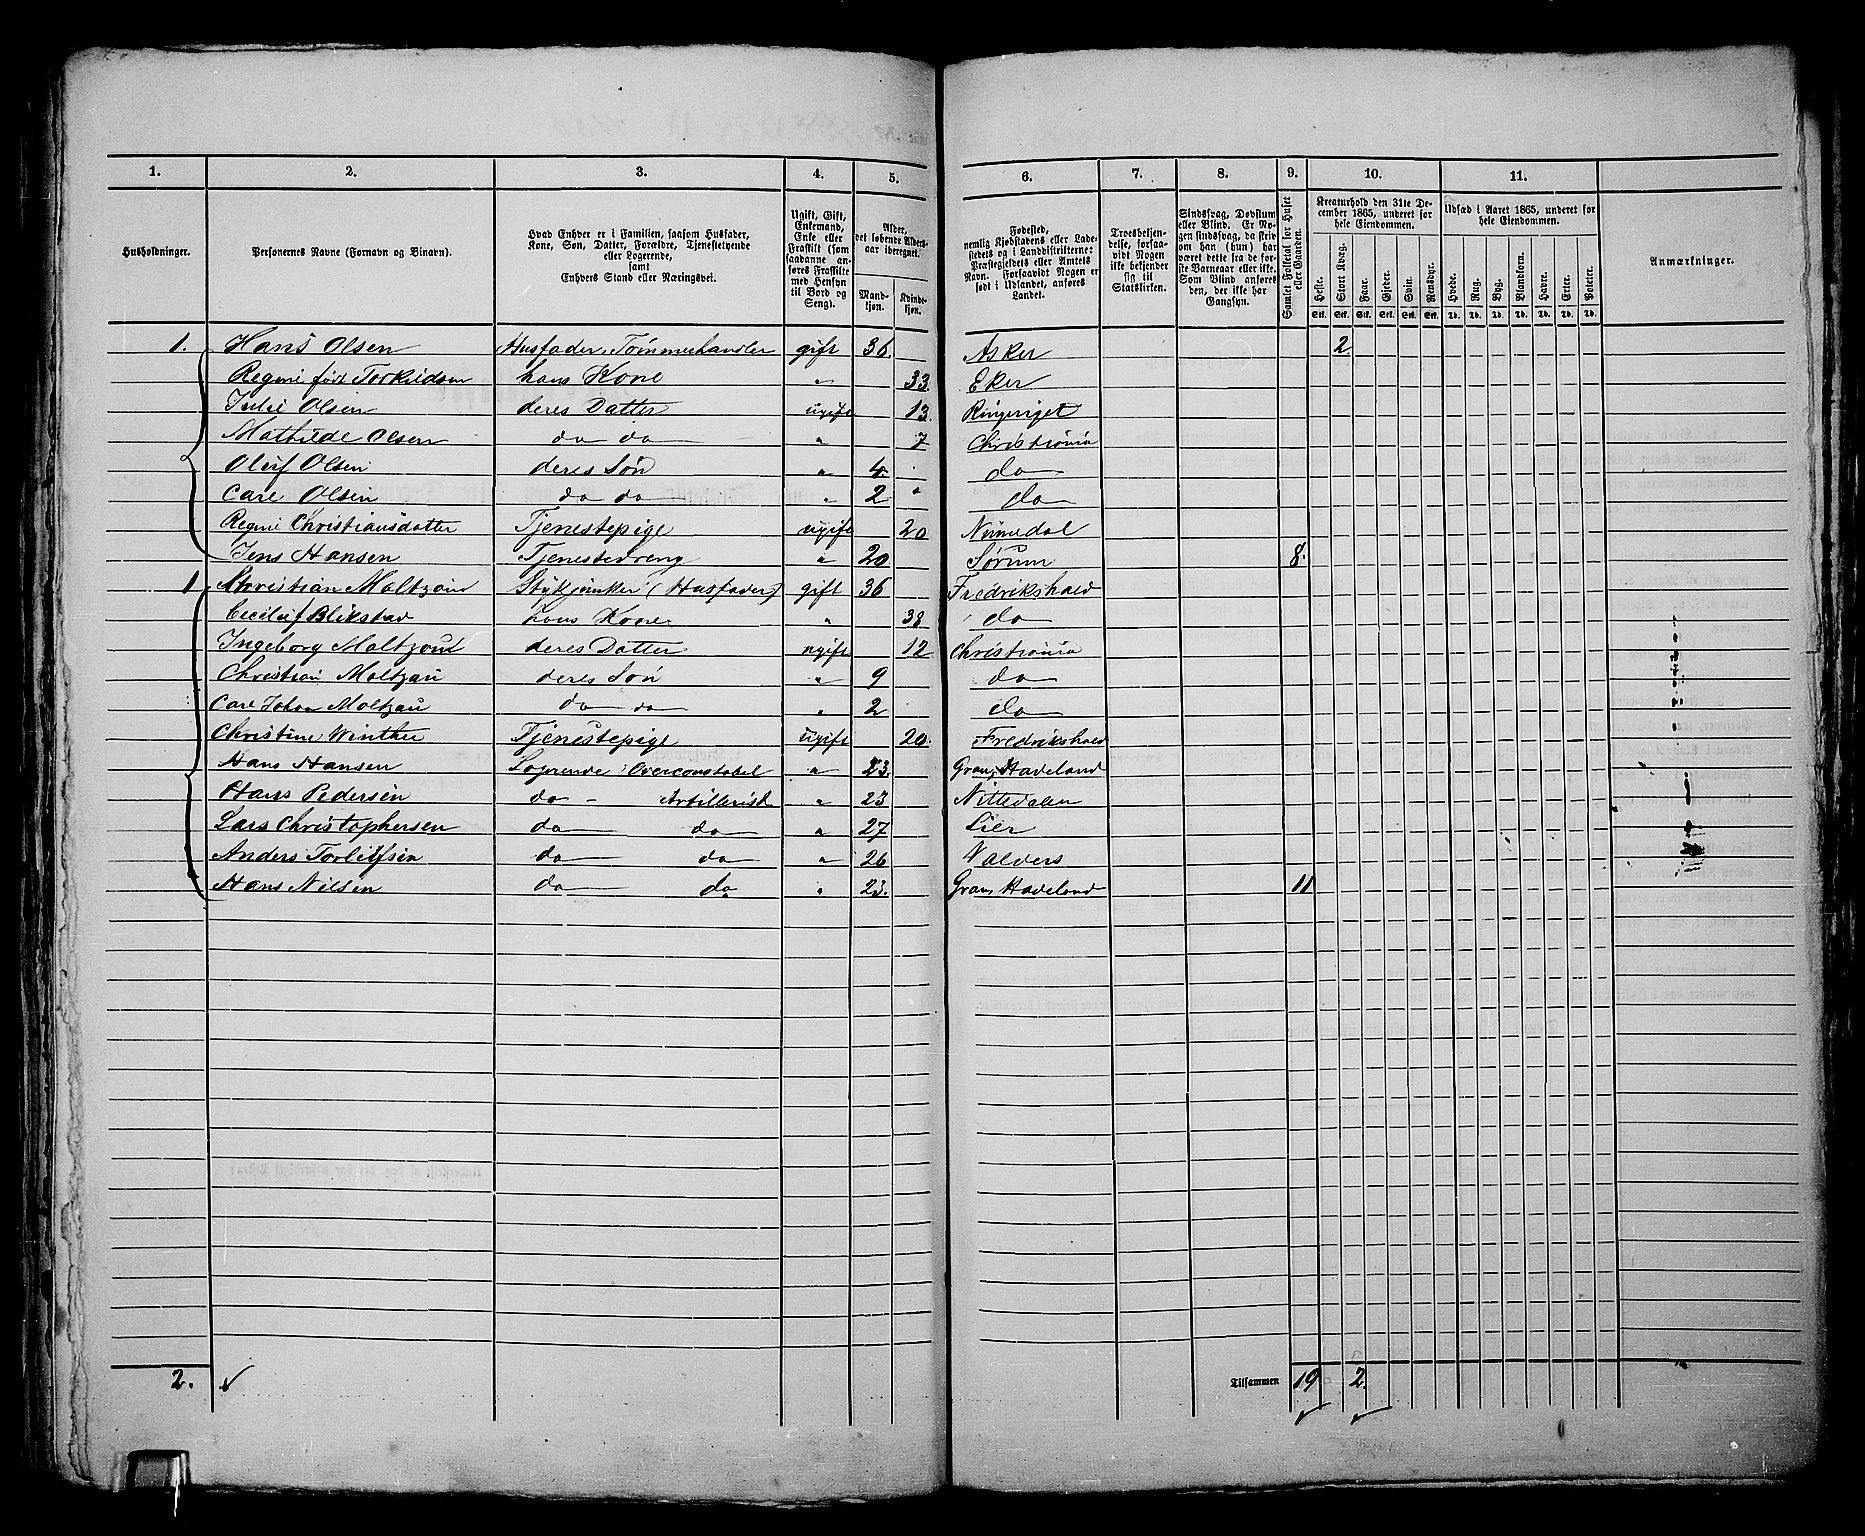 1. 2. 3. 4. 5. 6. 7. 8. 9. 10. 11.
Husholdninger.
Personernes Navne (Fornavn og Binavn).
Hvad Enhver er i Familien, saasom Husfader,
Kone, Søn, Datter, Forældre, Tjenestetyende
eller Logerende,
samt
Enhvers Stand eller Næringsvei.
Ugift, Gift,
Enkemand,
Enke eller
Fraskilt (som
saadanne an-
føres Fraskilte
med Hensyn
til Bord og
Seng).
Alder,
det løbende Alders-
aar iberegnet.
Mand-
kjøn.
Kvinde-
kjøn.
Fødested,
nemlig Kjøbstadens eller Lade-
stedets og i Landdistrikterne:
Præstegjeldets eller Amtets
Navn. Forsaavidt Nogen er
født i Udlandet, anføres
Landet.
Troesbekjen-
delse, forsaa-
vidt Nogen
ikke bekjender
sig til
Statskirken.
Sindssvag, Døvstum
eller Blind. Er No-
gen sindssvag, da skriv
om han (hun) har
været dette fra de før-
ste Barneaar eller ikke.
Som Blind anføres
den, der ikke har
Gangsyn.
Samlet Folketal for Huset
eller Gaarden.
Kreaturhold den 31te De-
cember 1865, underet for
hele Eiendommen.
Heste. Stort Kvæg. Faar. Gjeder. Svin. Rensdyr.
Stk. Stk. Stk. Stk. Stk. Stk.
Udsæd i Aaret 1865, underet for
hele Eiendommen.
Hvede. Rug. Byg. Blankorn. Havre. Erter. Poteter.
Td. Td. Td. Td. Td. Td. Td.
Anmærkninger.
1. Hans Olsen Husfader, Tømmerhandler gift 36 Asker 2
Regine født Torkildsen hans Kone " 33 Eker
Julie Olsen deres Datter ugift 13 Ringeriget
Mathilde Olsen do do " 7 Christiania
Oluf Olsen deres Søn " 4 do
Carl Olsen do do " 2 do
Regine Christiansdatter Tjenestepige ugift 20 Numedal
Jens Hansen Tjenestedreng " 20 Sørum 8.
1 Christian Moltzau Stykjunker (Husfader) gift 36 Fredrikshald
Blikstad hans Kone " 38 do
Ingeborg Moltzau deres Datter ugift 12 Christiania
Christian Moltzau deres Søn " 9 do
Carl Johan Moltzau do do " 2 do
Christine Winther Tjenestepige ugift 20 Fredrikshald
Hans Hansen Logerende Overconstabel " 23 Gran, Hadeland
Hans Pedersen do - Artillerist " 23 Nittedalen
Lars Christophersen do do " 27 Lier
Anders Torleifsen do do " 26 Valders
Hans Nilsen do do " 23 Gran, Hadeland 11
2. Tilsammen 19 2.